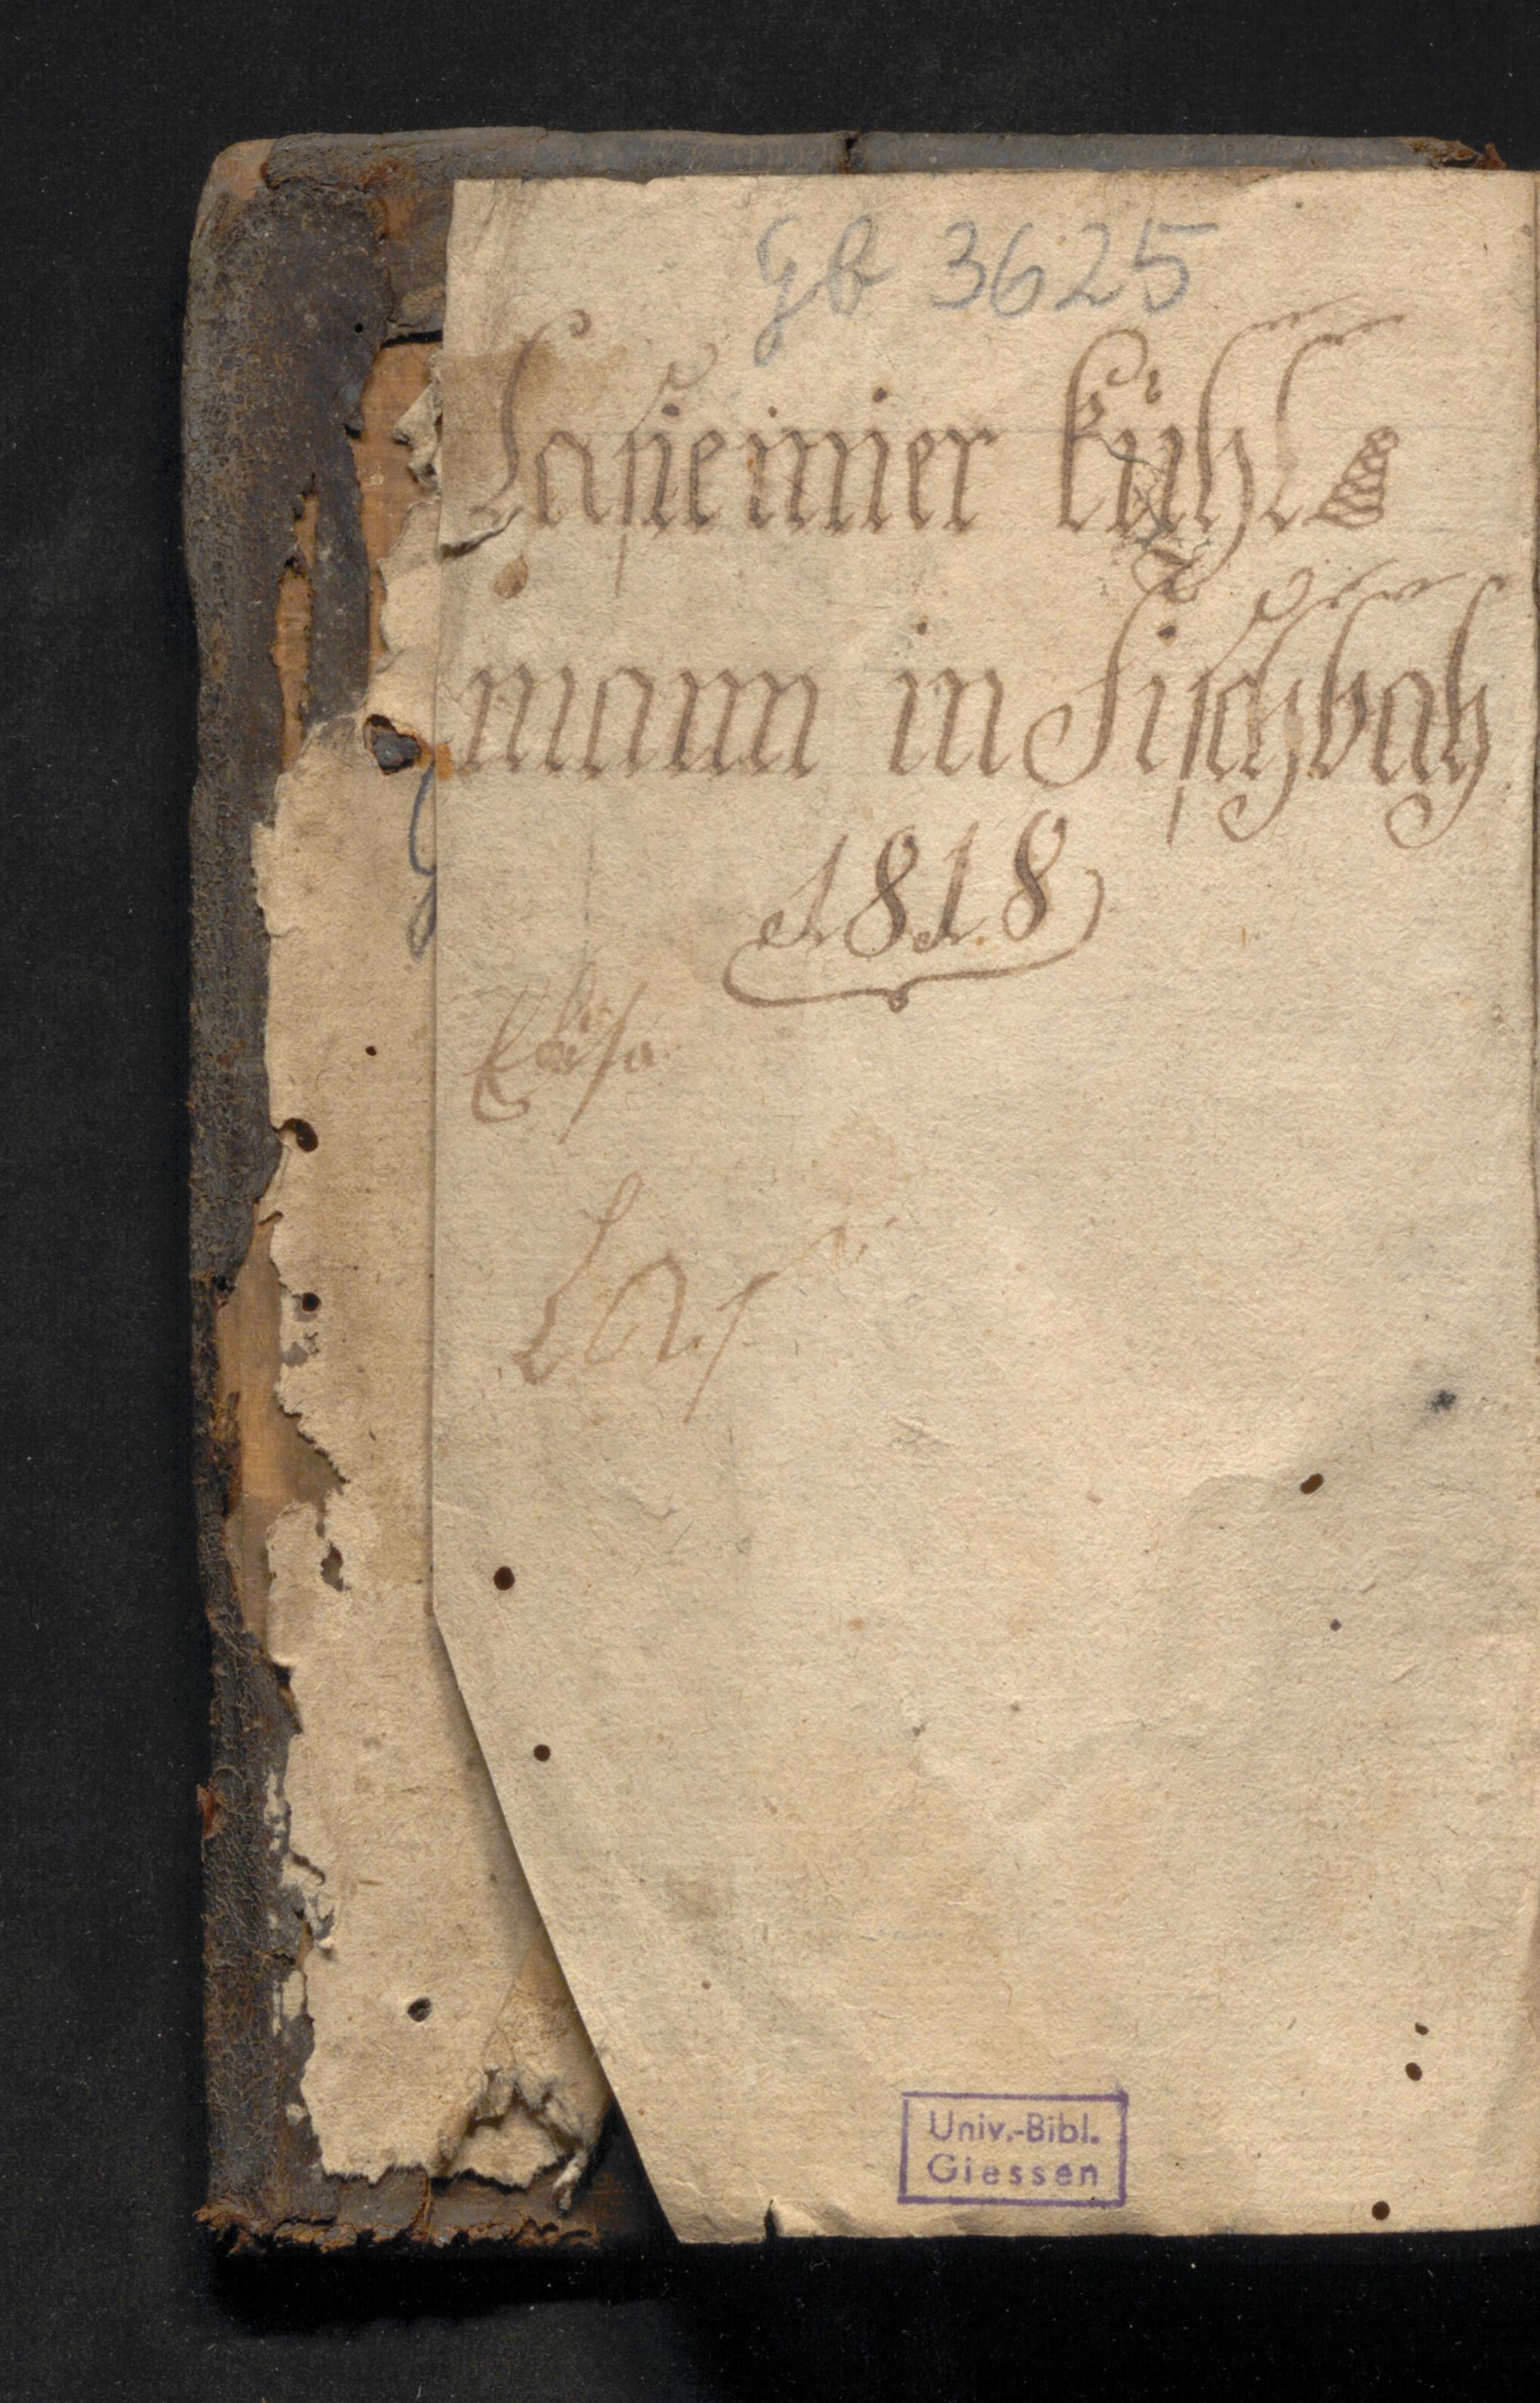 Gb 3625
Casiemier Kühl
mann in Fischbach
1818
Univ.-Bibl.
Giessen